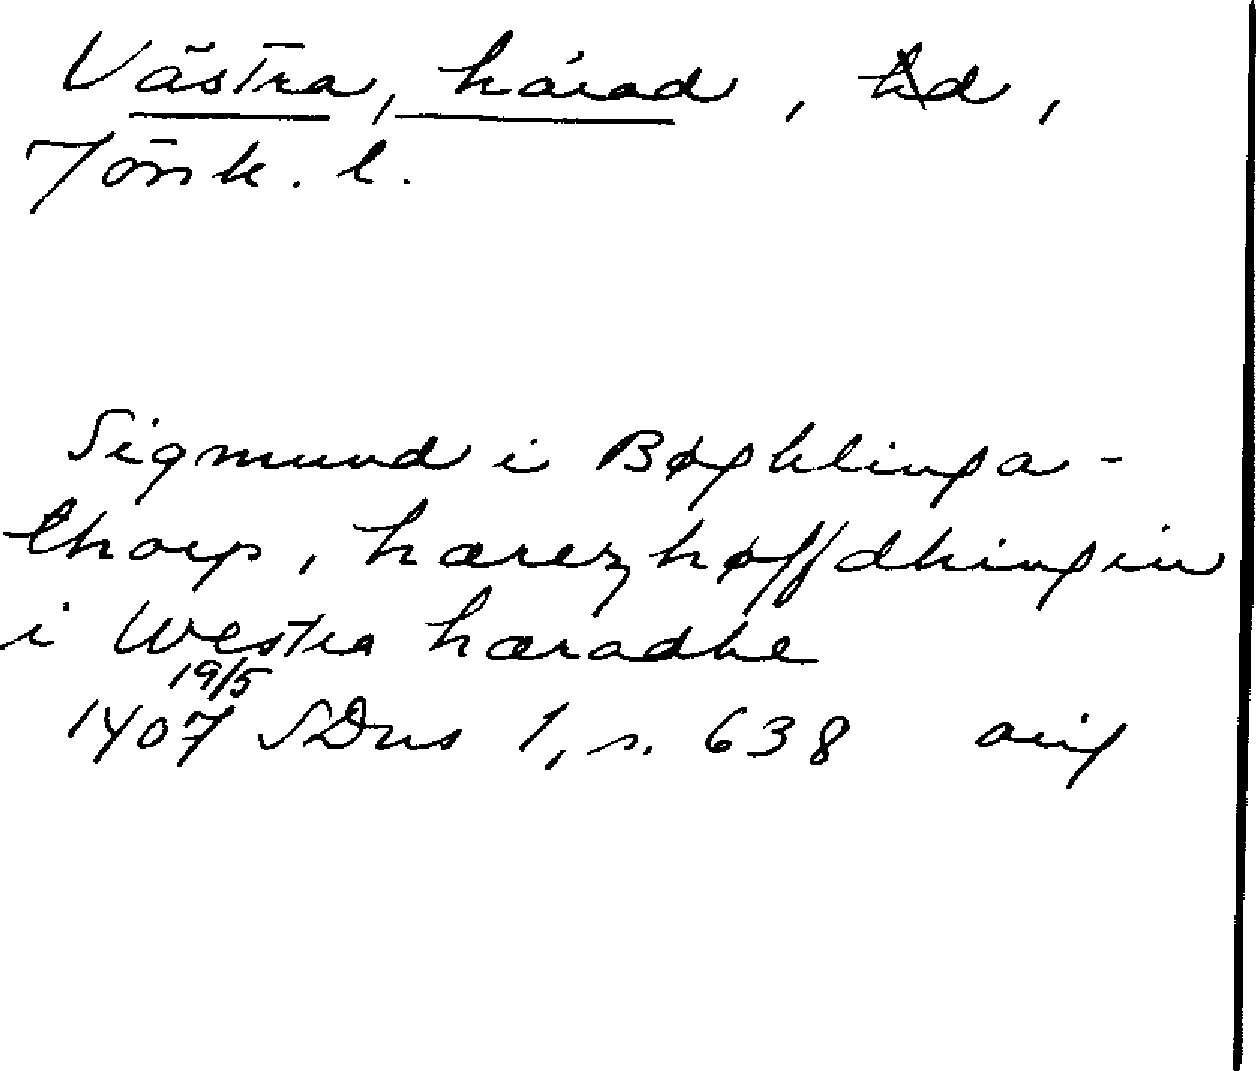 Västra, härad, hd,
Jönk. l.
Sigmund i Bøghlinga-
thorp, hærezhøffdhingin
i Westra hæradhe
19/5
1407 SDns 1, s. 638 orig